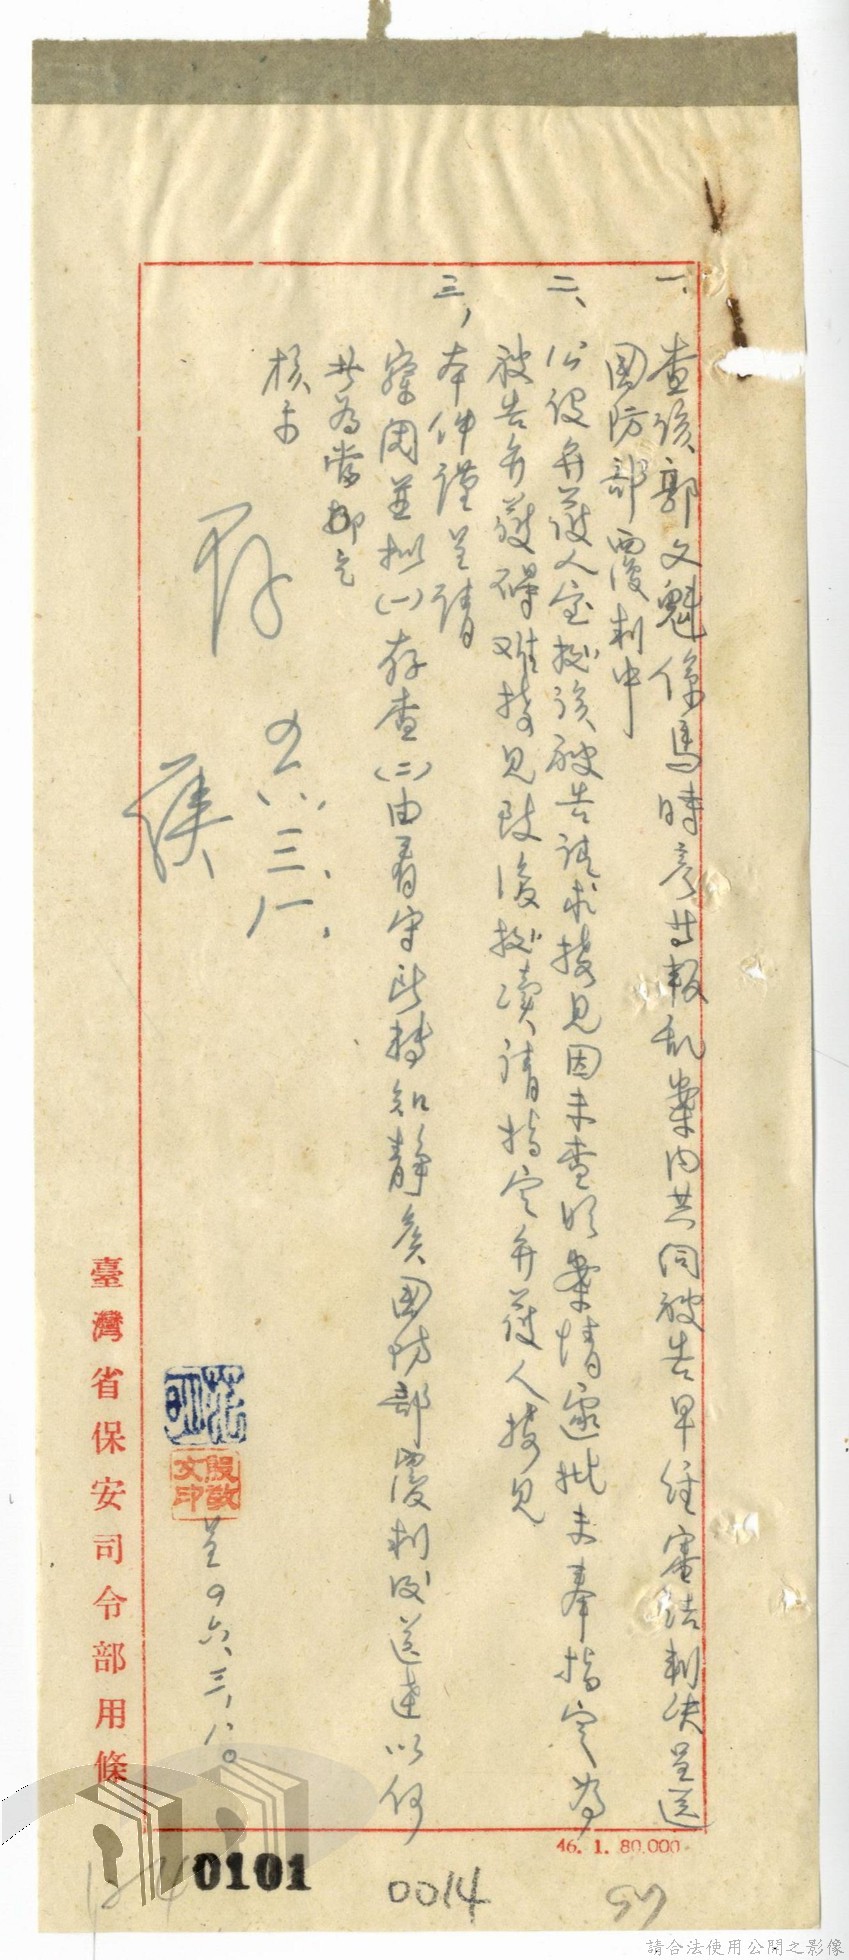 一、查該郭文魁係馬時彥等叛亂案內共同被告早經審結判決呈送
國防部覆判中
二、公設弁護人室擬該被告請求接見因未查明案情遂批未奉指定為
被告弁護碍难接見改後擬凟請指定弁護人接見
三、本件謹呈請
察閱並拟(一)存查(二)由看守所轉知靜矣國防部覆判後送達以何
者為當揶乞
核示
四六、三、八、
臺灣省保安司令部用條
殷敬
文印
呈四六、三、八。
46. 1. 80.000
0101
0014
97
請合法使用公開之影像